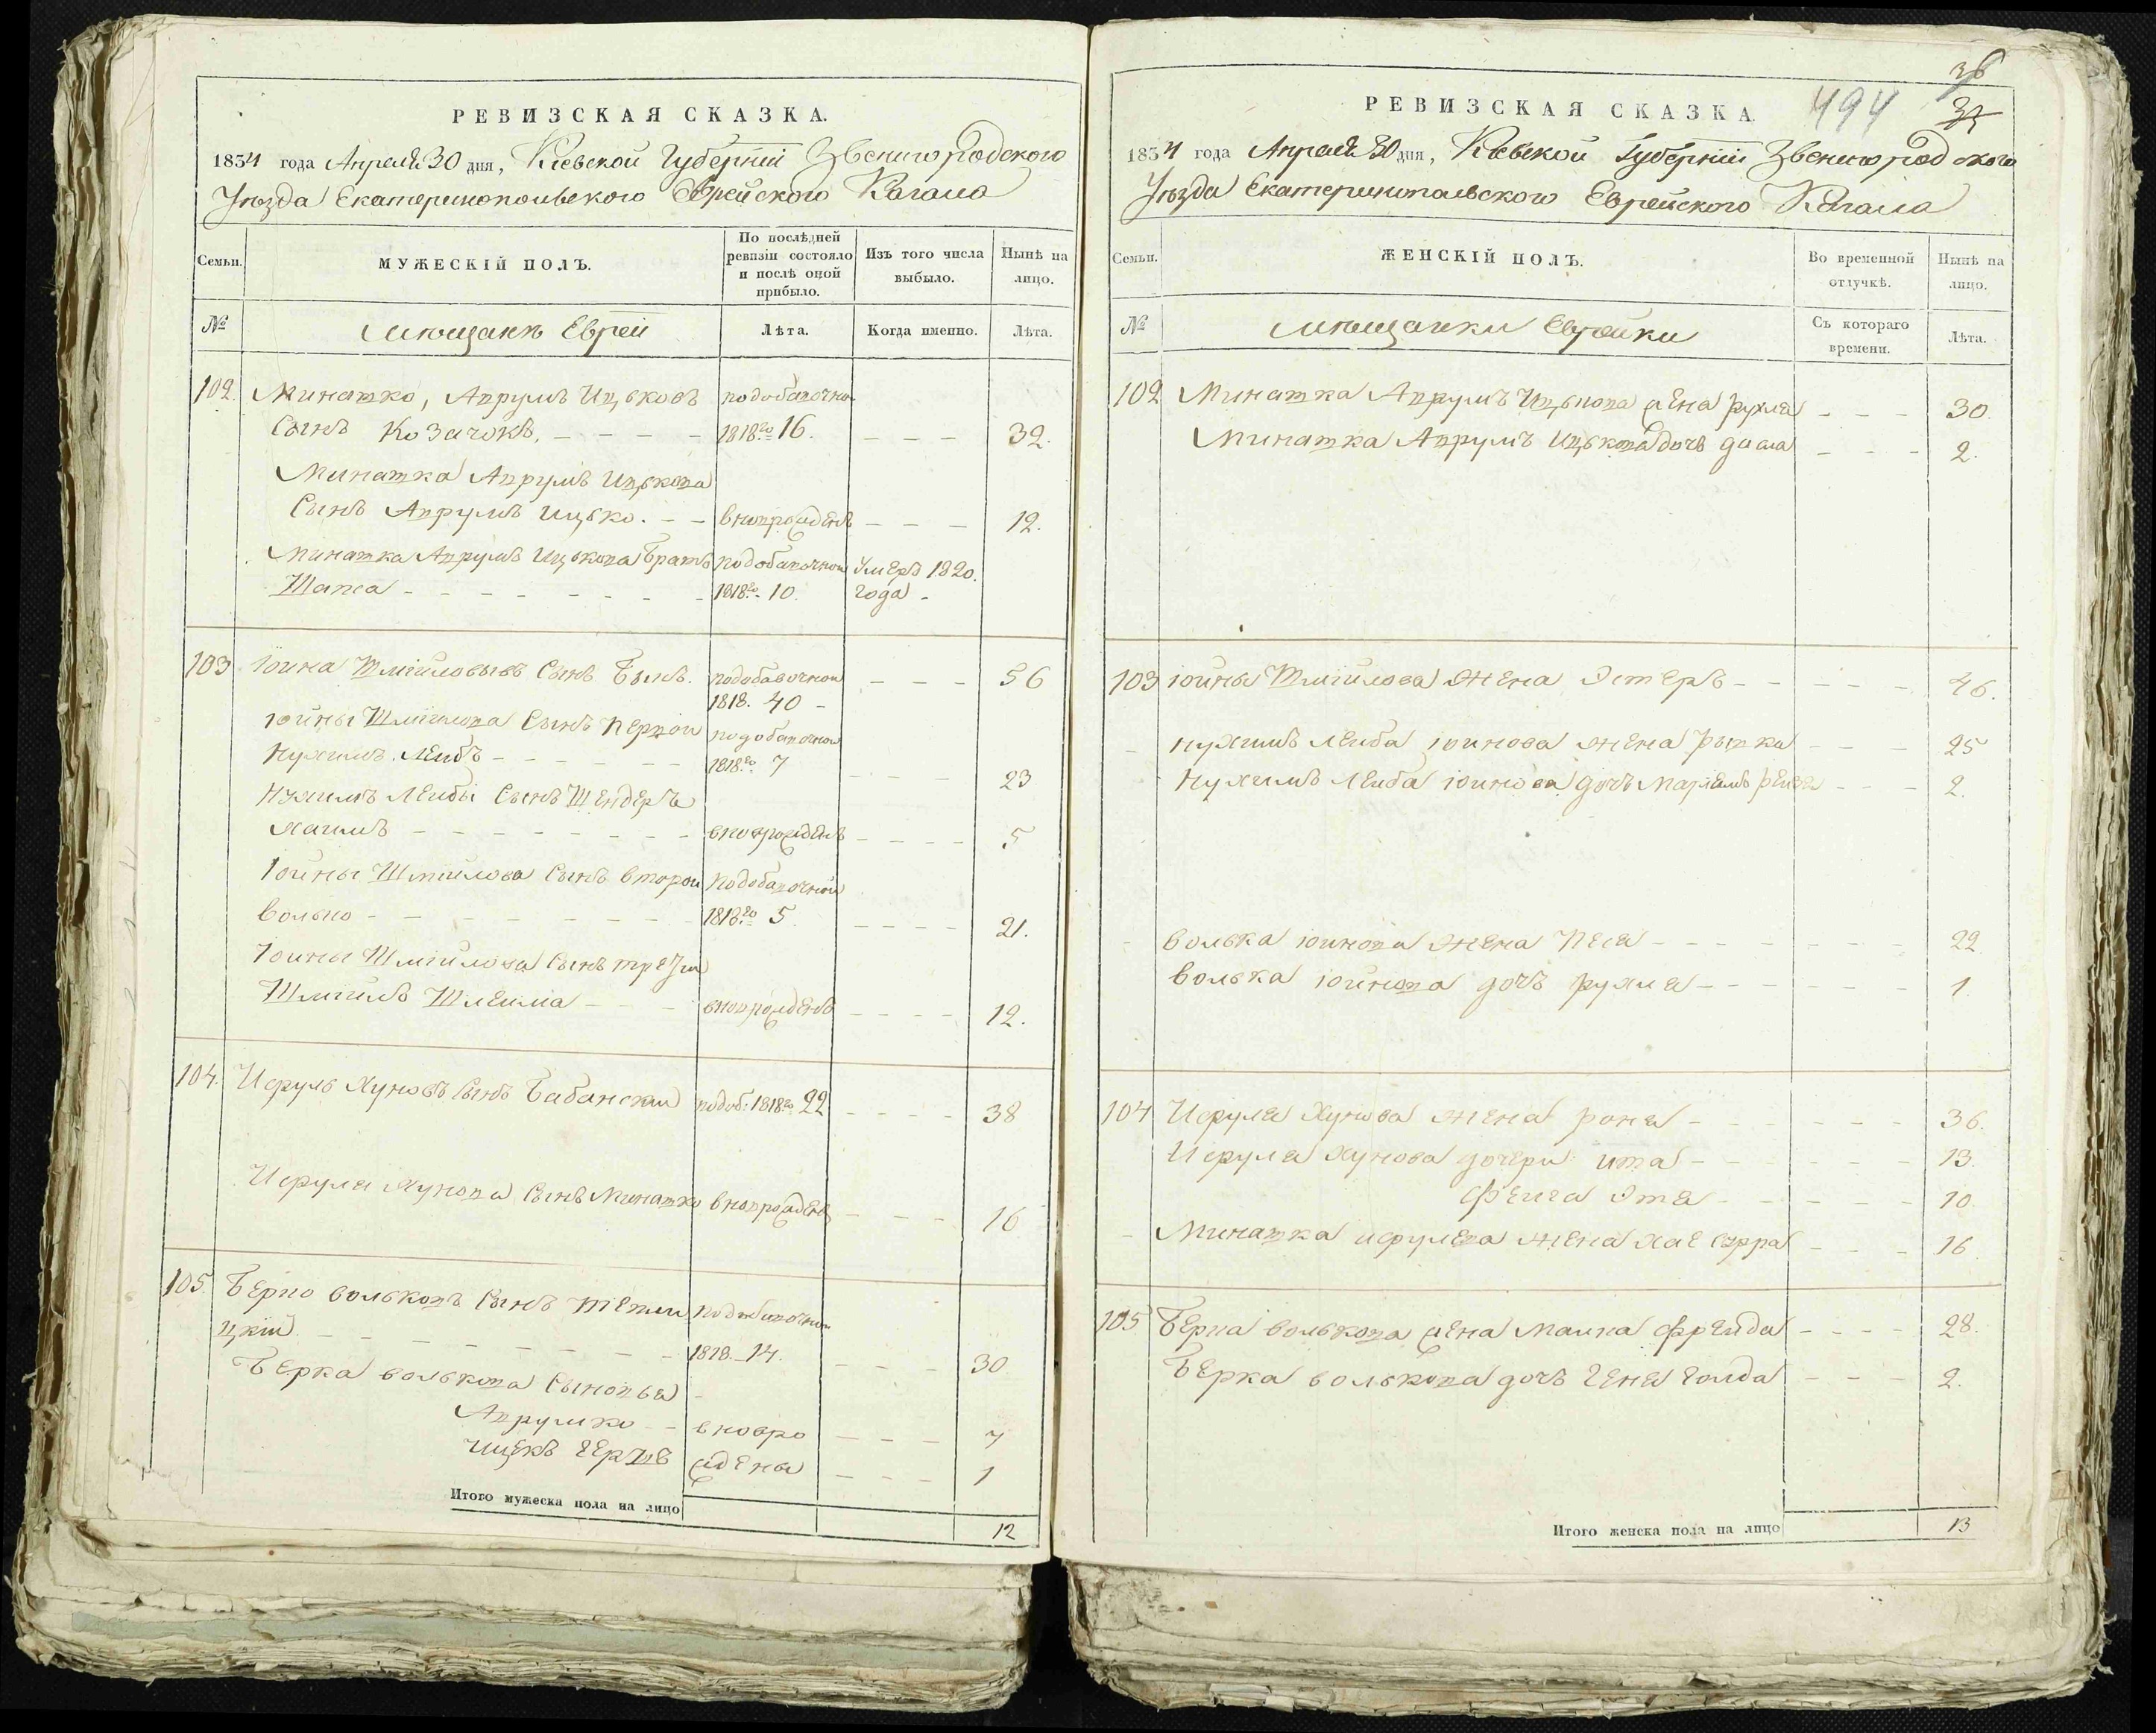 РЕВИЗСКАЯ СКАЗКА.
1834 года Апреля 30 дня, Кіевской Губерніи Звенигородского
Уѣзда Екатеринопольского Еврейского Кагала
Семьи.
МУЖЕСКІЙ ПОЛЪ.
По послѣдней ревизіи состояло и послѣ оной прибыло.
Изъ того числа выбыло.
Нынѣ на лицо.
№
Мещанъ Еврей
Лѣта.
Когда именно.
Лѣта.
102. Минашко, Аврумъ Ицьковъ подобавочной
Сынъ Козачокъ. - - - - 1818го 16. - - - 32.
Минашка Аврумъ Ицькова
Сынъ Аврумъ Ицько. - - вноврожденъ - - - 12.
Минашка Аврумъ Ицькова Братъ подобавочной Умеръ 1820.
Шапса - - - - - - - 1818го 10. года -
103 Іойна Шмійловывъ Сынъ Быкъ. подобавочной - - - 56
1818. 40 -
Іойны Шмійлова Сынъ первой подобавочной
Нухимъ Лейбъ - - - - - - 1818го 7 - - - - 23
Нухимъ Лейбы Сынъ Шендеръ
Хаимъ - - - - - - - - вноврожденъ - - - - 5
Іойны Шмійлова Сынъ второй подобавочной
Волько - - - - - - - 1818го 5. - - - - 21.
Іойны Шмійлова Сынъ третій
Шмійлъ Шлеима - - - вноврожденъ - - - - 12.
104. Исруль Хуновъ Сынъ Бабанский подоб: 1818го 22 - - - - 38
Исруля Хунова Сынъ Минашко вноврожденъ - - - 16
105. Берко Вольковъ Сынъ Тетии подобавочной
цкій. - - - - - - - 1818. 14. - - - 30
Берка Волькова Сыновья -
Аврумко - - вновро - - - 7
Ицекъ Герш ждены - - - 1
Итого мужеска пола на лицо
12
36
35
494
РЕВИЗСКАЯ СКАЗКА.
1834 года Апреля 30 дня, Кіевской Губерніи Звенигородского
Уѣзда Екатеринопольского Еврейского Кагала
Семьи.
ЖЕНСКІЙ ПОЛЪ.
Во временной отлучкѣ.
Нынѣ на лицо.
№
Мещанки Еврейки
Съ котораго времени.
Лѣта.
102 Минашка Аврумъ Ицькова жена Рухля - - - 30.
Минашка Аврумъ Ицькова дочь - - - 2.
103 Іойны Шмійлова жена Эстеръ - - - - - 46.
- Нухимъ Лейба Іойнова жена Рывка - - - 25
Нухимъ Лейба Іойнова дочъ Маріемъ Рейзя - - - 2.
- Волька Іойнова жена Песя - - - - - - - 22
Волька Іойнова дочъ Рухля - - - - - - 1.
104 Исруля Хунова жена Роня - - - - - - 36.
Исруля Хунова дочери Ита - - - - - - 13.
Фейга Этя - - - - - 10.
- Минашка Исрулева жена Хае Сурра - - - 16.
105 Берка Волькова жена Малка Фрейда - - - - 28.
Берка Волькова дочъ Геня Голда - - - 2.
Итого женска пола на лицо
13